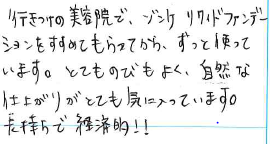 行きつけの美容院で、ゾンク リクイドファンデー
ションをすすめてもらってから、ずっと使って
います。とてものびもよく、自然な
仕上がりがとても気に入っています。
長持ちで経済的!!